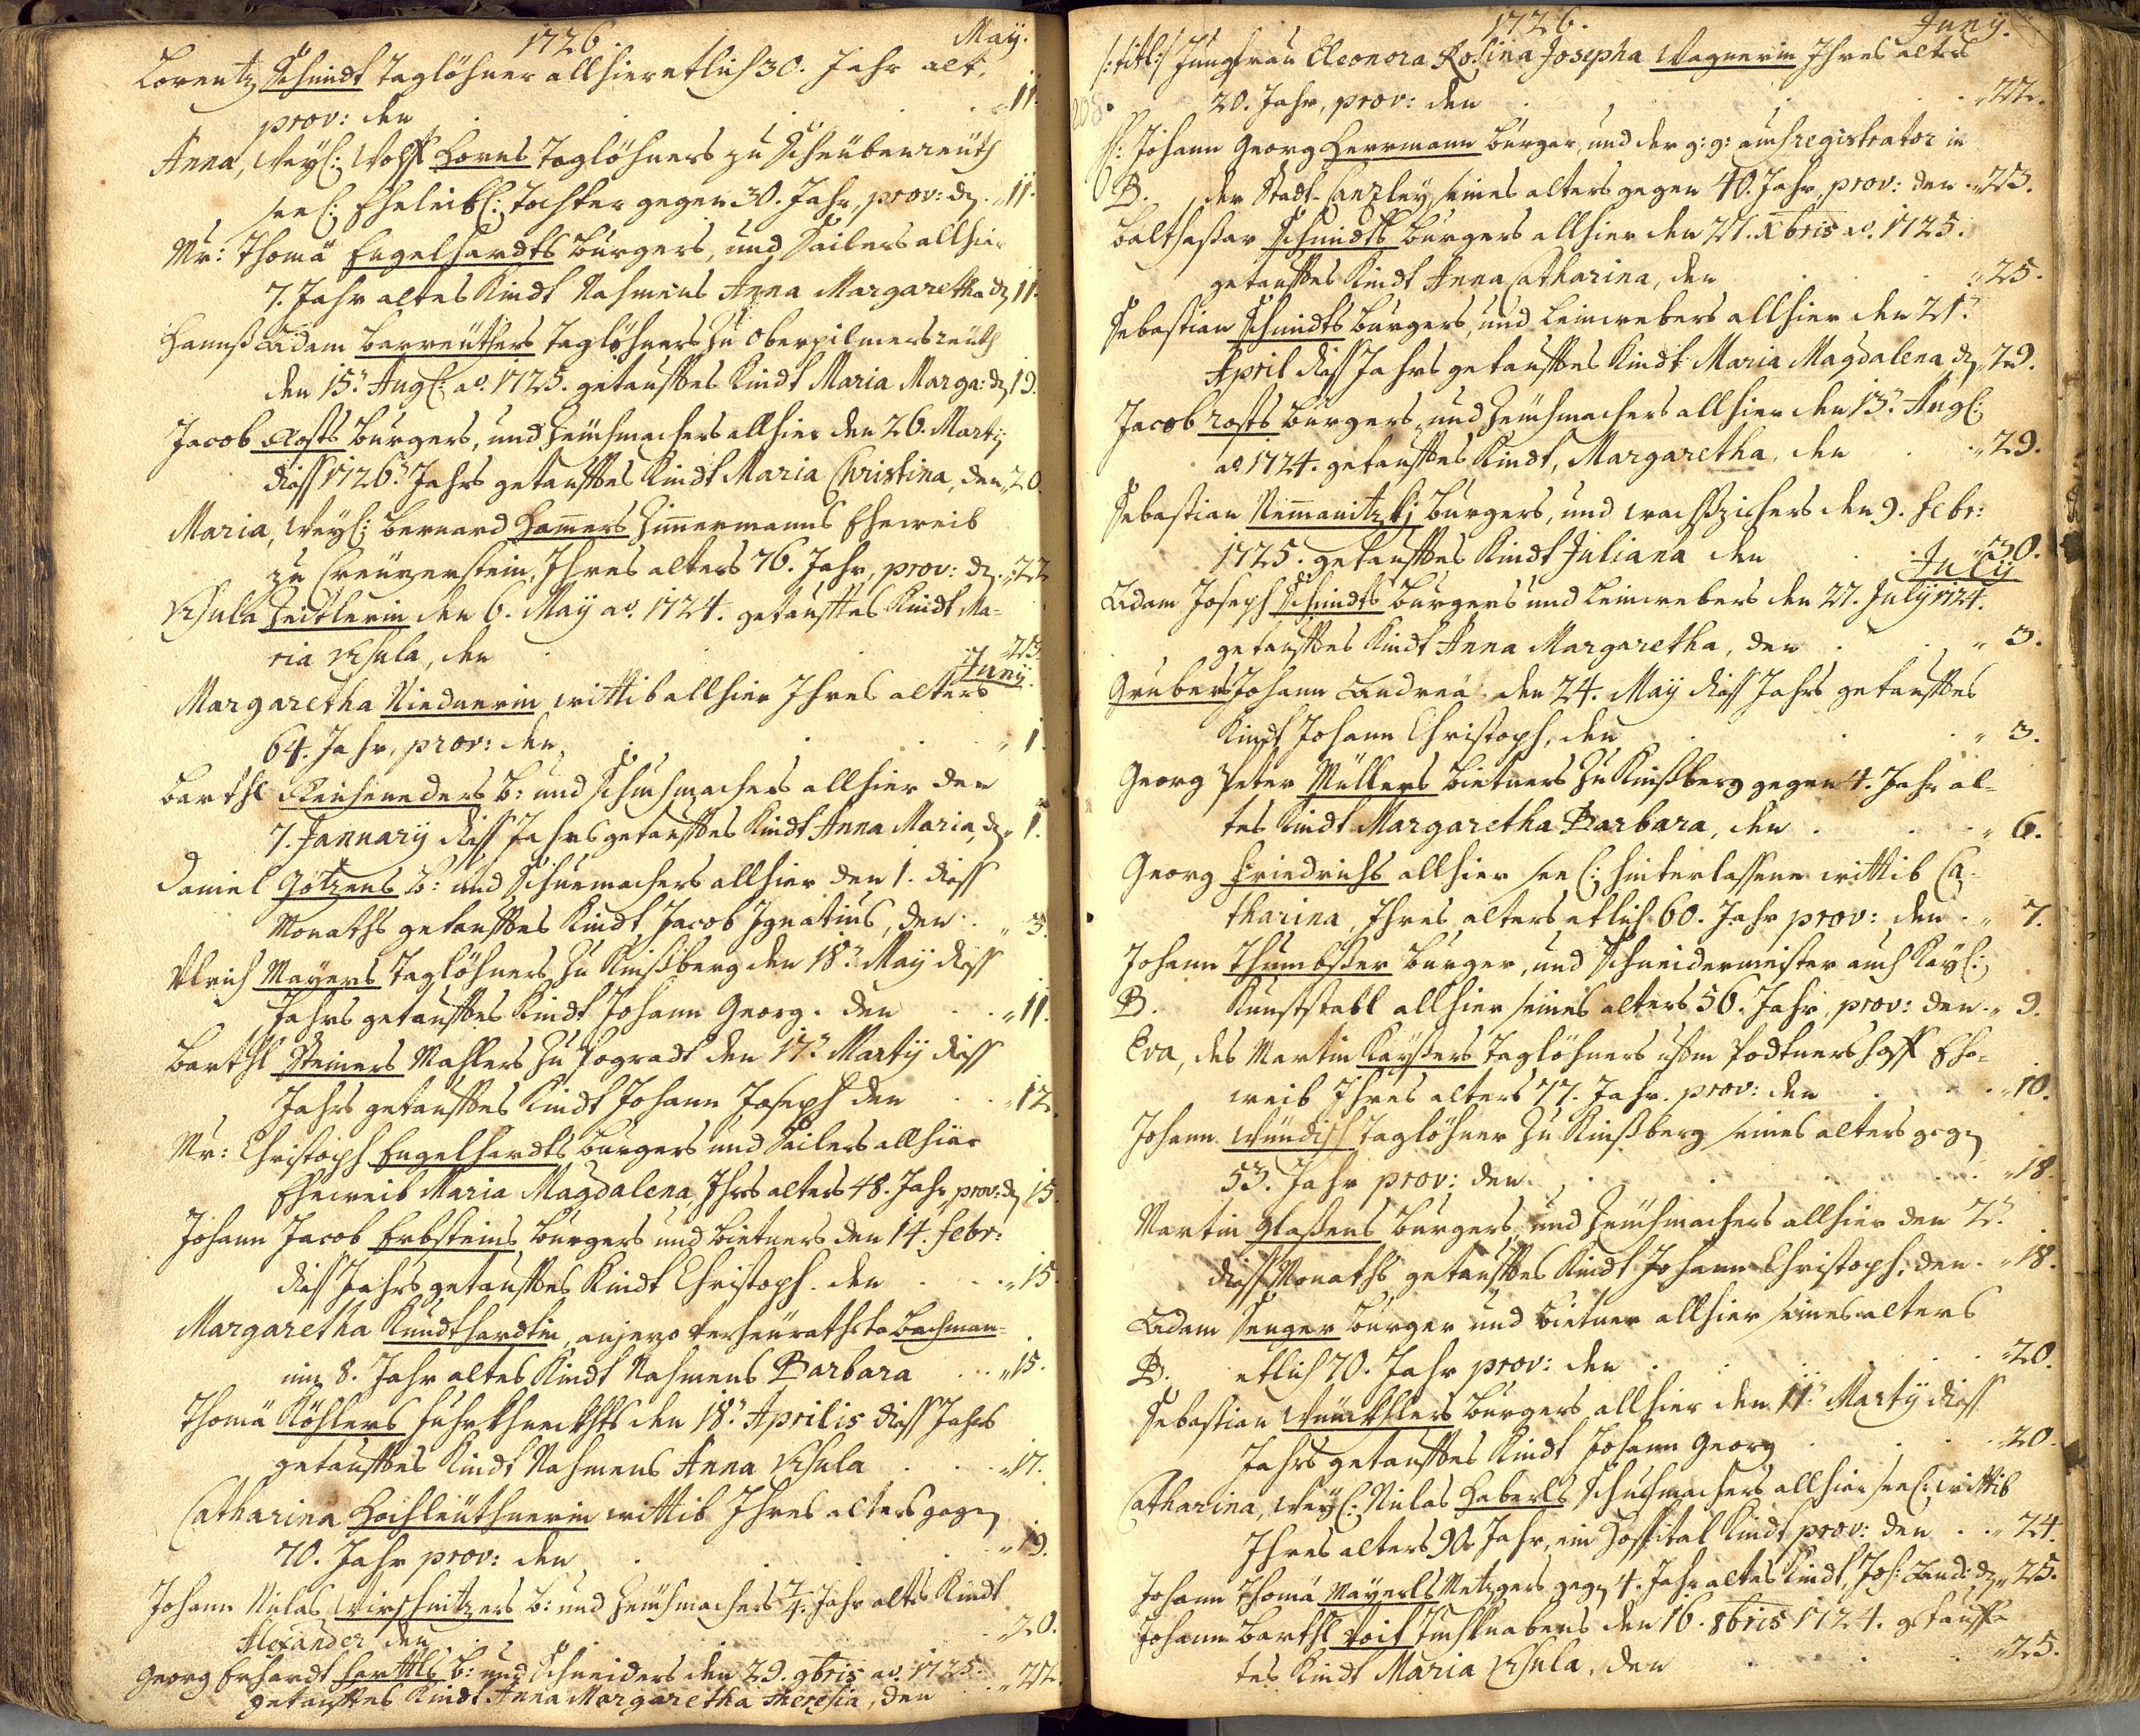 1726. May.
Lorentz Schmidt Taglöhner allhier etlich 30. Jahr alt.
prov: den 11.
Anna, Weyl: Wolff Horns Taglöhners zu Scheübenreüth
seel: Eheleibl: Tochter gegen 30. Jahr, prov: d. 11.
Mr: Thomä Engelhardts Burgers, und Sailers allhier
7. Jahr altes Kindt Nahmens Anna Margaretha d 11.
Hannß Adam Barreüthers Taglöhners zu Oberpilmersreüth
den 15. Aug: ao. 1725. getaufftes Kindt Maria Marga: d 19.
Jacob Rosts Burgers, und Zeüchmachers allhier den 26. Martij
diss 1726. Jahrs getaufftes Kindt Maria Christina, den 20.
Maria, Weyl: Bernard Hamers Zimermanns Eheweib
zu Creüzenstein, Ihres alters 76. Jahr, prov: d. 22
Vrsula Zeitlerin den 6. Maÿ ao. 1724. getaufftes Kindt Ma-
ria Vrsula, den 23.
Junÿ.
Margaretha Niednerin wittib allhier Ihres alters
64. Jahr, prov: den 1.
Barthl Reicheneders B: und Schuhmachers allhier den
7. Januarÿ diss Jahrs getaufftes Kindt Anna Maria, d 1.
Daniel Götzens B: und Schuemachers allhier den 1. diss
Monaths getaufftes Kindt Jacob Ignatius, den 3.
Vlrich Mayers Taglöhners zu Kinßberg den 18. Maÿ diss
Jahrs getaufftes Kindt Johann Georg. den 11.
Barthl Steiners Mahlers zu Pograth den 17. Martÿ diss
Jahrs getaufftes Kindt Johann Joseph den 12.
Mr: Christoph Engelhardts Burgers und Sailers allhier
Eheweib Maria Magdalena, Ihrs alters 48. Jahr, prov: d 15.
Johann Jacob Erbsteins Burgers und Bietners den 14. Febr:
diss Jahrs getaufftes Kindt Christoph. den 15.
Margaretha Kundthardtin, anjezo verheürathete Bachman-
nin 8. Jahr altes Kindt Nahmens Barbara 15.
Thomä Köhlers Fuhrkhneckhts den 18. Aprilis diss Jahrs
getaufftes Kindt Nahmens Anna Vrsula 17.
Catharina Hochleüthnerin wittib Ihres alters gegen
70. Jahr prov: den 19.
Johann Niclas Wirschnitzers B: und Zeüchmachers 7/4. Jahr altes Kindt
Alexander den 20.
Georg Erhardt Harttls B: und Schneiders den 29. 9bris ao. 1725.
getaufftes Kindt Anna Margaretha Theresia, den 22.
1726. Junÿ.
/:titl:/ Jungfrau Eleonora Rosina Josepha Wagnerin Ihres alters
20. Jahr, prov: den 22.
H: Johann Georg Herrmann Burger, und der g: g: auch registrator in
B. der Stadt-Canzley, seines alters gegen 40. Jahr, prov: den 23.
Balthaßar Schmidts Burgers allhier den 21. Xbris ao. 1725.
getaufftes Kindt Anna Catharina, den 25.
Sebastian Schmidts Burgers, und Leinwebers allhier den 21.
April diss Jahrs getaufftes Kindt Maria Magdalena d 29.
Jacob rosts Burgers, und Zeüchmachers allhier den 15. Aug:
ao. 1724. getaufftes Kindt, Margaretha, den 29.
Sebastian Nemanitzkÿ Burgers, und wachßziehers den 9. Febr:
1725. getaufftes Kindt Juliana den 30.
Julÿ
Adam Joseph Schmidts Burgers und Leinwebers den 27. Julÿ 1724.
getaufftes Kindt Anna Margaretha, den 3.
Grubers Johann Andreä den 24. Maÿ diss Jahrs getaufftes
Kindt Johann Christoph, den 3.
Georg Peter Müllers Bietners zu Kinßberg gegen 4. Jahr al-
tes Kindt Margaretha Barbara, den 6.
Georg Friedrichs allhier seel: hinterlassene wittib Ca-
tharina, Ihres alters etlich 60. Jahr prov: den 7.
Johann Thumbser Burger, und Schneidermeister auch Kayl:
B. Kunststabl allhier seines alters 56. Jahr, prov: den 9.
Eva, des Martin Kayßers Taglöhners ufm Podtnershoff Ehe-
weib Ihres alters 77. Jahr. prov: den 10.
Johann Wündisch Taglöhner zu Kinßberg seines alters gegen
53. Jahr prov: den 18.
Martin Glaßens Burgers, und Zeüchmachers allhier den 2.
diss Monaths getaufftes Kindt Johann Christoph, den 18.
Adam Senger Burger und Bietner allhier seines alters
B. etlich 70. Jahr prov: den 20.
Sebastian Wünckhlers Burgers allhier den 11. Martÿ diss
Jahrs getaufftes Kindt Johann Georg 20.
Catharina, Weyl: Niclas Haberls Schuhmachers allhier seel: wittib
Ihres alters 90. Jahr, ein Hospital Kindt prov: den 24.
Johann Thomä Mayerls Metzgers gegen 4. Jahr altes Kindt, Joh: And: d 25.
Johann Barthl Voit Tuchknabens den 16. 8bris 1724. getauff-
tes Kindt Maria Vrsula, den 25.